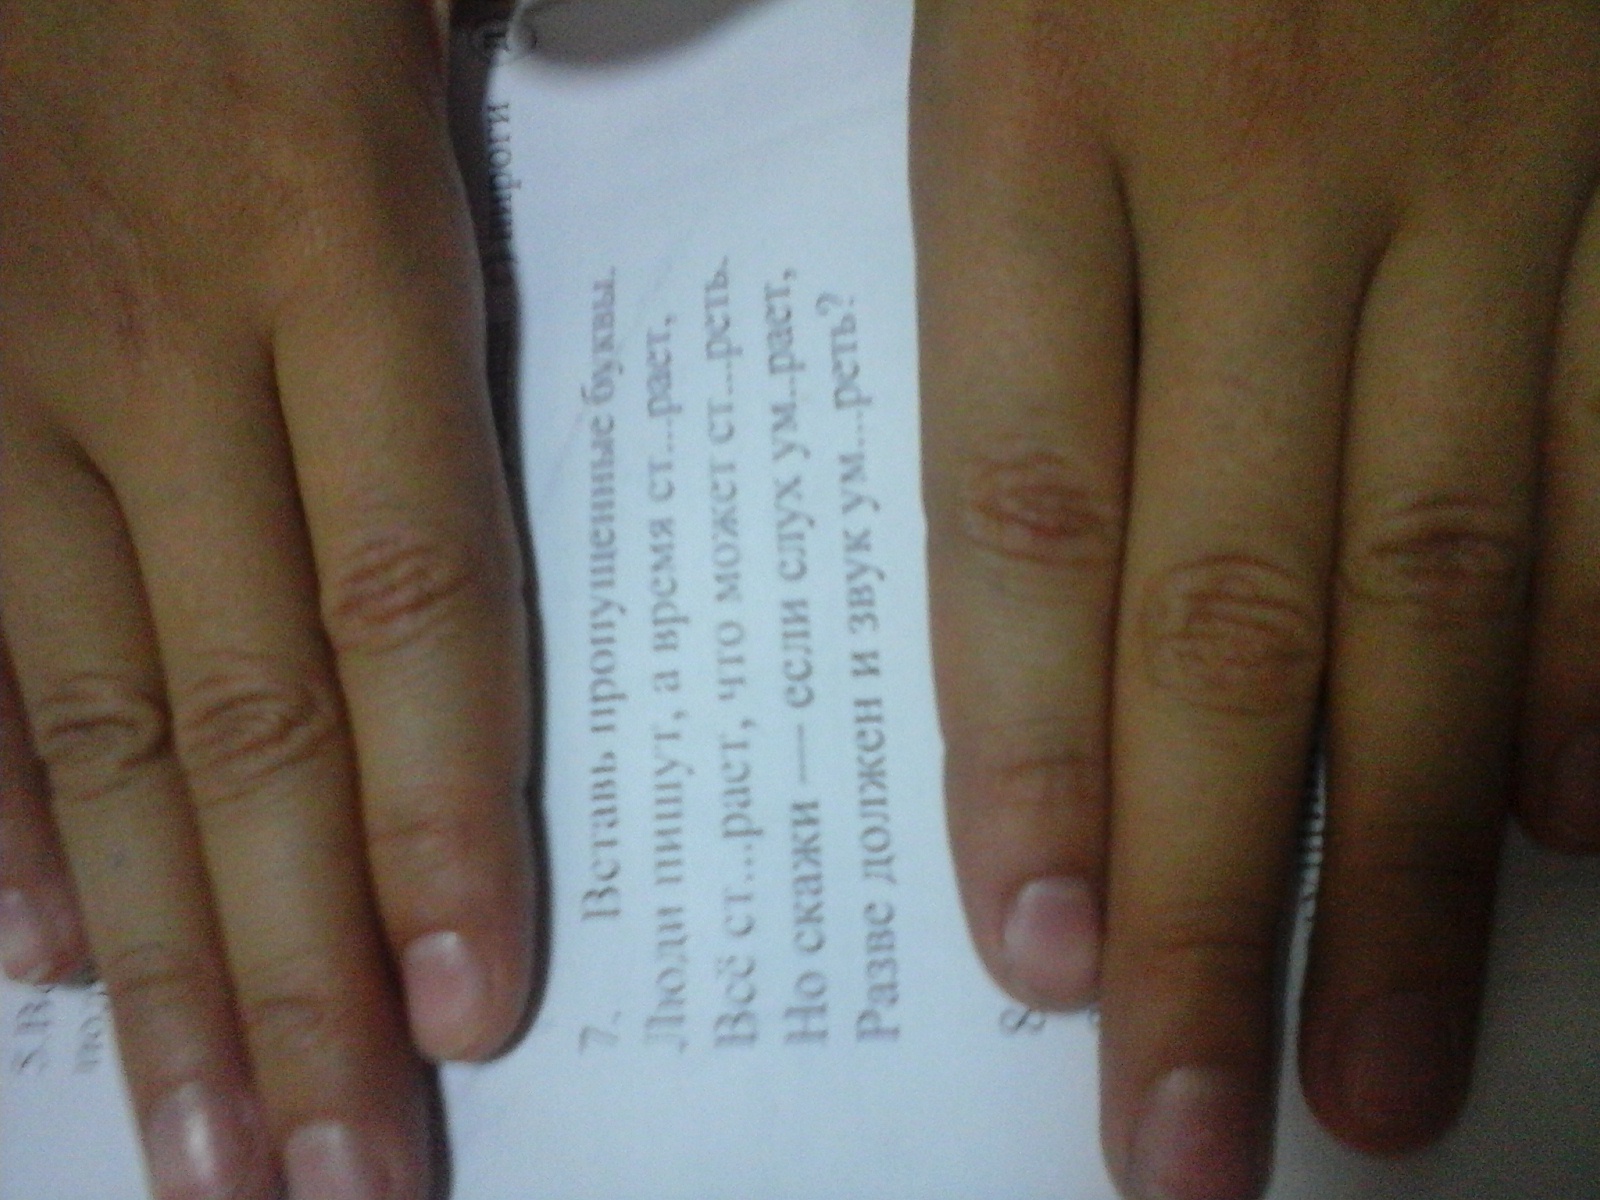 пироги
7. Вставь пропущенные буквы.
Люди пишут, а время ст...рает,
Всё ст...рает, что может ст...реть.
Но скажи — если слух ум...рает,
Разве должен и звук ум...реть?
8